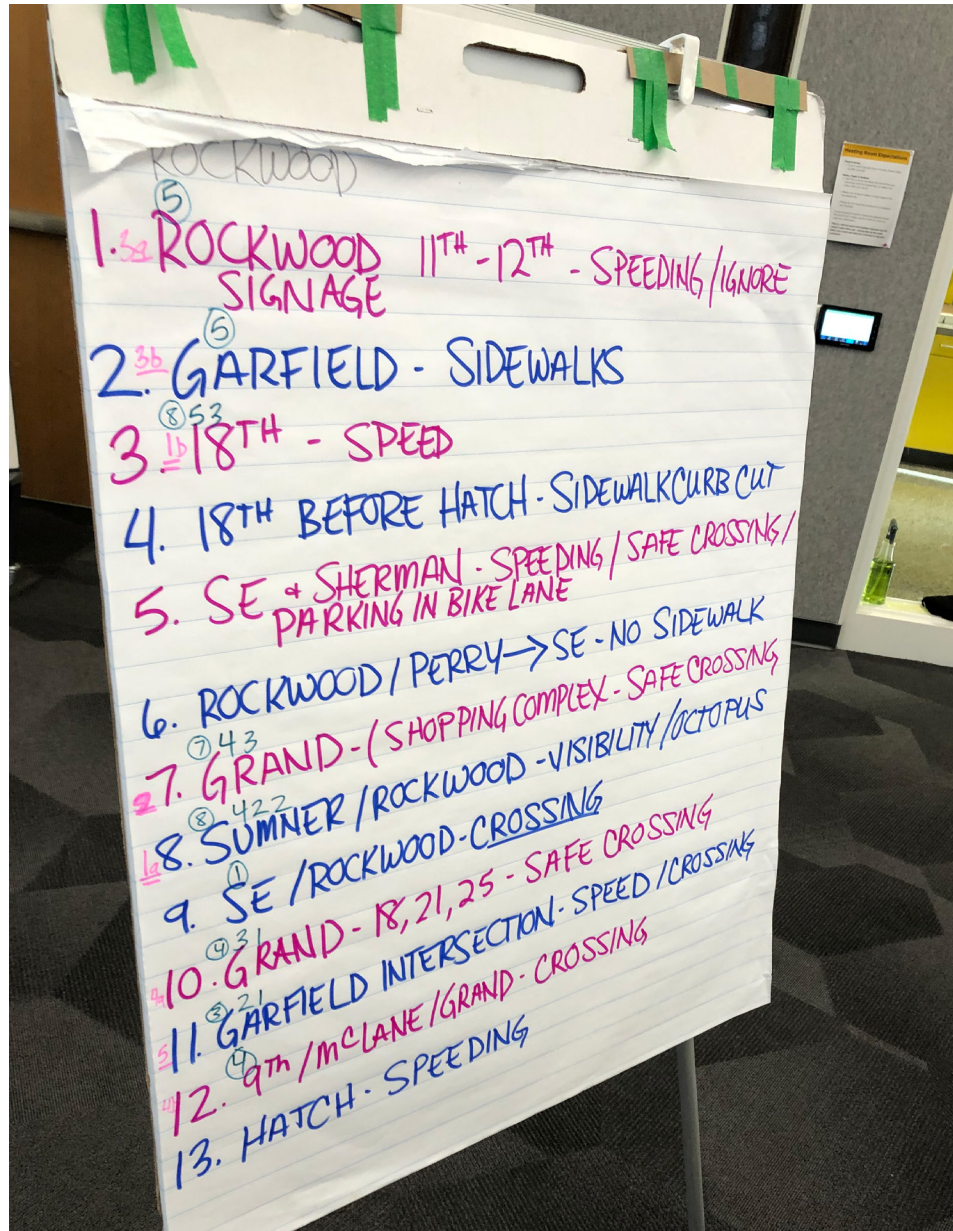 ROCKWOOD
5
1. 3a ROCKWOOD 11TH - 12TH - SPEEDING / IGNORE
SIGNAGE
5
2. 3b GARFIELD - SIDEWALKS
8 53
3. 1b 18TH - SPEED
4. 18TH BEFORE HATCH - SIDEWALK CURB CUT
5. SE & SHERMAN - SPEEDING / SAFE CROSSING /
PARKING IN BIKE LANE
6. ROCKWOOD / PERRY → SE - NO SIDEWALK
7 43
2 7. GRAND - ( SHOPPING COMPLEX - SAFE CROSSING
8 422
1a 8. SUMNER / ROCKWOOD - VISIBILITY / OCTOPUS
9. SE / ROCKWOOD - CROSSING
1
4 31
4a 10. GRAND - 18, 21, 25 - SAFE CROSSING
3 21
5 11. GARFIELD INTERSECTION - SPEED / CROSSING
4
4b 12. 9TH / MCLANE / GRAND - CROSSING
13. HATCH - SPEEDING
Meeting Room Expectations